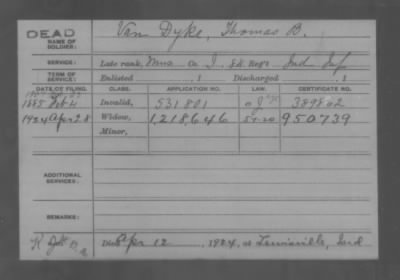 DEAD Van Dyke, Thomas B.
NAME OF
SOLDIER:
SERVICE: Late rank, Co I, 84 Reg't Ind Inf
TERM OF
SERVICE: Enlisted , 1 Discharged , 1
DATE OF FILING. CLASS. APPLICATION NO. LAW. CERTIFICATE NO.
1885 Feb 4 Invalid, 531801 389802
1924 Apr 28 Widow, 1218646 950739
Minor,
ADDITIONAL
SERVICES:
REMARKS:
Died Apr 12, 1924, at Lewisville, Ind